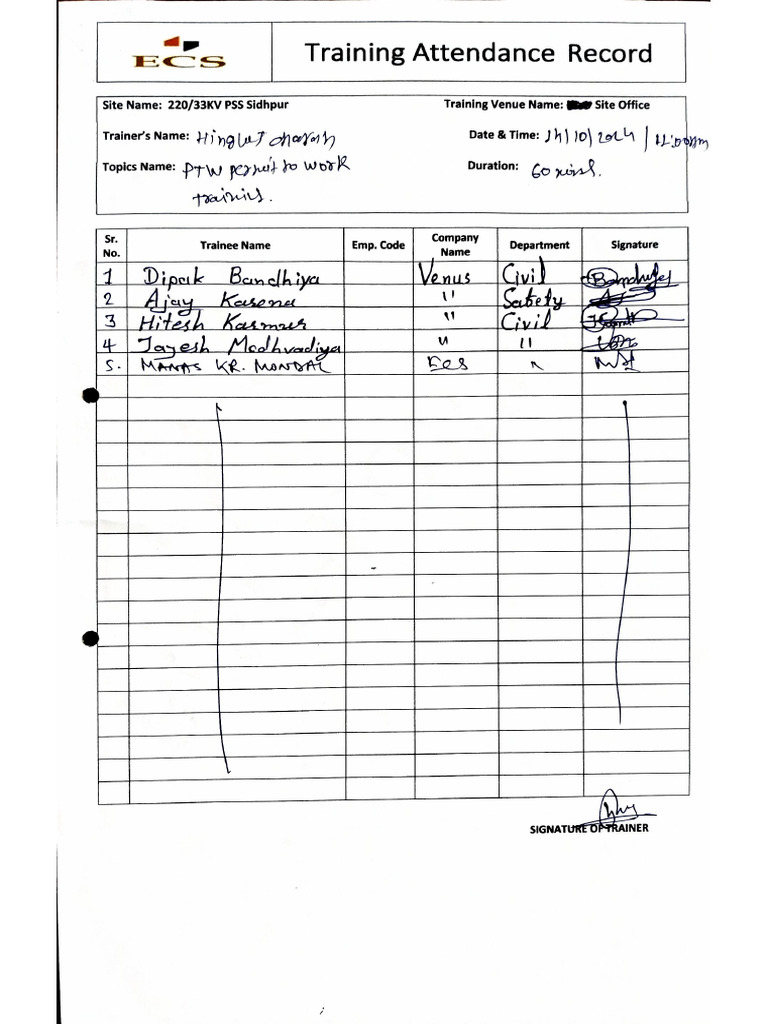 ECS
Training Attendance Record
Site Name: 220/33KV PSS Sidhpur
Training Venue Name: Site Office
Trainer's Name: Hinglaj
Date & Time: 14/10/2024 /
Topics Name: PTW permit to work
Duration: 60 mins.
training.
Sr. No. Trainee Name Emp. Code Company Name Department Signature
1 Dipak Bandhiya Venus Civil
2 Ajay Karena " Safety
3 Hitesh Karmur " Civil
4 Jayesh Modhvadiya " "
5. MANAS KR. MONDAL Ecs "
SIGNATURE OF TRAINER